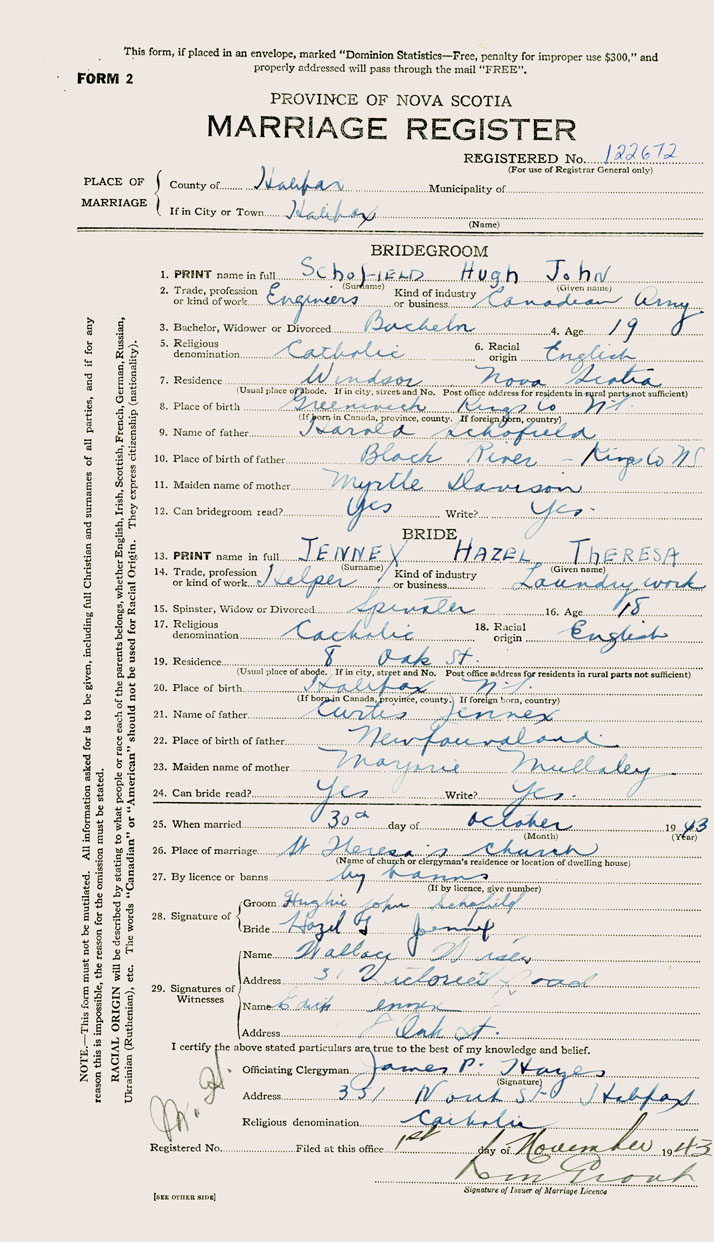 This form, if placed in an envelope, marked “Dominion Statistics—Free, penalty for improper use $300,” and
properly addressed will pass through the mail “FREE”.
FORM 2
PROVINCE OF NOVA SCOTIA
MARRIAGE REGISTER
REGISTERED No. 122672
(For use of Registrar General only)
PLACE OF MARRIAGE
County of Halifax Municipality of
If in City or Town Halifax
(Name)
BRIDEGROOM
1. PRINT name in full SCHOFIELD Hugh John
(Surname) (Given name)
2. Trade, profession or kind of work Engineers Kind of industry or business Canadian Army
3. Bachelor, Widower or Divorced Bachelor 4. Age 19
5. Religious denomination Catholic 6. Racial origin English
7. Residence Windsor Nova Scotia
(Usual place of abode. If in city, street and No. Post office address for residents in rural parts not sufficient)
8. Place of birth Greenwich Kings Co N.S.
(If born in Canada, province, county. If foreign born, country)
9. Name of father Harold Schofield
10. Place of birth of father Black River - Kings Co NS
11. Maiden name of mother Myrtle Davison
12. Can bridegroom read? Yes Write? Yes.
BRIDE
13. PRINT name in full JENNEX HAZEL THERESA
(Surname) (Given name)
14. Trade, profession or kind of work Helper Kind of industry or business Laundry work
15. Spinster, Widow or Divorced Spinster 16. Age 18
17. Religious denomination Catholic 18. Racial origin English
19. Residence 8 Oak St.
(Usual place of abode. If in city, street and No. Post office address for residents in rural parts not sufficient)
20. Place of birth Halifax N.S.
(If born in Canada, province, county. If foreign born, country)
21. Name of father Curtis Jennex
22. Place of birth of father Newfoundland
23. Maiden name of mother Marjorie Mullaley
24. Can bride read? Yes Write? Yes.
25. When married 30th day of October 1943
(Month) (Year)
26. Place of marriage St Theresa's Church
(Name of church or clergyman's residence or location of dwelling house)
27. By licence or banns by banns
(If by licence, give number)
28. Signature of
Groom Hughie John Schofield
Bride Hazel T Jennex
29. Signatures of Witnesses
Name Wallace
Address Victoria Road
Name Edith ennex
Address 8 Oak St.
I certify the above stated particulars are true to the best of my knowledge and belief.
Officiating Clergyman James P. Hayes
(Signature)
Address 351 North St Halifax
Religious denomination Catholic
Registered No. Filed at this office 1st day of November 1943
Signature of Issuer of Marriage Licence
[SEE OTHER SIDE]
NOTE.—This form must not be mutilated. All information asked for is to be given, including full Christian and surnames of all parties, and if for any
reason this is impossible, the reason for the omission must be stated.
RACIAL ORIGIN will be described by stating to what people or race each of the parents belongs, whether English, Irish, Scottish, French, German, Russian,
Ukrainian (Ruthenian), etc. The words “Canadian” or “American” should not be used for Racial Origin. They express citizenship (nationality).